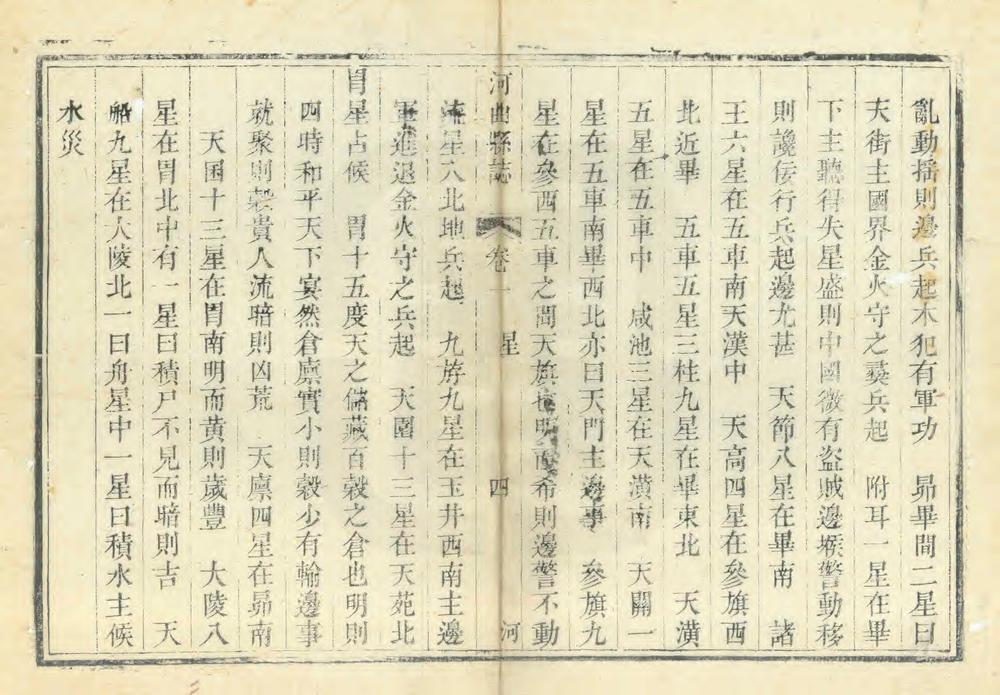 亂動搖則邊兵起木犯有軍功 昴畢間二星曰
天街主國界金火守之彛兵起 附耳一星在畢
下主聽得失星盛則中國微有盜賊邊堠警動移
則讒佞行兵起邊尤甚 天節八星在畢南 諸
王六星在五車南天漢中 天高四星在參旗西
北近畢 五車五星三柱九星在畢東北 天潢
五星在五車中 咸池三星在天潢南 天關一
星在五車南畢西北亦曰天門主邊事 參旗九
星在參西五車之間天旗也明而希則邊警不動
河曲縣誌 卷一 星 四 河
流星入北地兵起 九斿九星在玉井西南主邊
軍進退金火守之兵起 天園十三星在天苑北
胃星占候 胃十五度天之儲藏百穀之倉也明則
四時和平天下宴然倉廪實小則穀少有輸邊事
就聚則穀貴人流暗則凶荒 天廪四星在昴南
天囷十三星在胃南明而黃則歲豐 大陵八
星在胃北中有一星曰積尸不見而暗則吉 天
船九星在大陵北一曰舟星中一星曰積水主候
水災